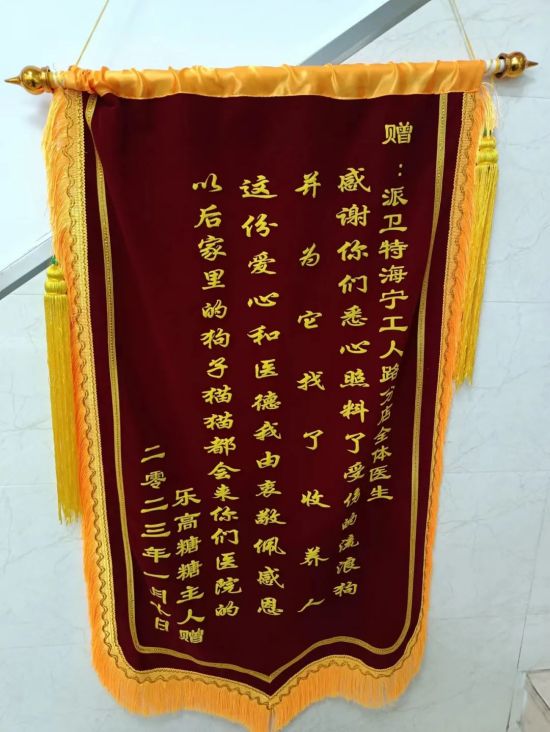 赠：派卫特海宁工人路分店全体医生
感谢你们悉心照料了受伤的流浪狗
并为它找了收养人
这份爱心和医德我由衷敬佩感恩
以后家里的狗子猫猫都会来你们医院的
乐高糖糖主人赠
二零二三年一月 日